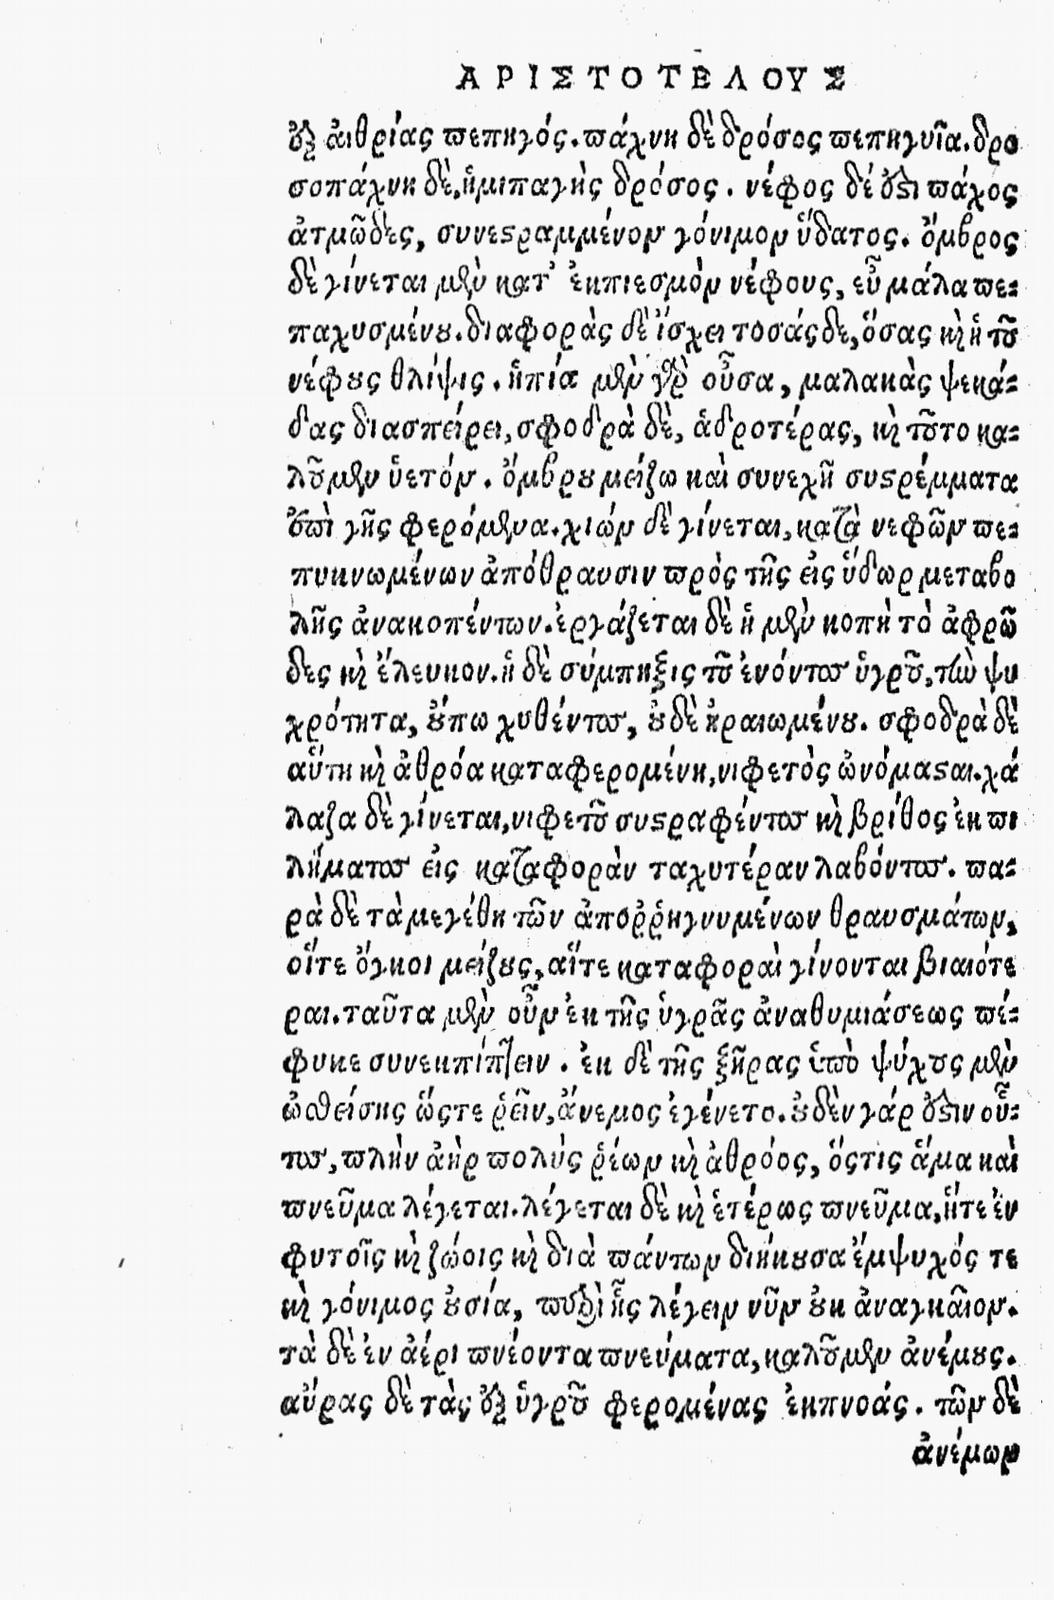 ΑΡΙΣΤΟΤΕΛΟΥΣ
ἐξ αἰθρίας πεπηγός. πάχνη δὲ δρόσος πεπηγυῖα. δρο
σοπάχνη δὲ, ἡμιπαγὴς δρόσος. νέφος δέ ἐστι πάχος
ἀτμῶδες, συνεστραμμένον γόνιμον ὕδατος. ὄμβρος
δὲ γίνεται μὲν κατ' ἐκπιεσμὸν νέφους, εὖ μάλα πε-
παχυσμένου. διαφορὰς δὲ ἴσχει τοσάςδε, ὅσας καὶ ἡ τοῦ
νέφους θλίψις. ἡπία μὲν γὰρ οὖσα, μαλακὰς ψεκά-
δας διασπείρει, σφοδρὰ δὲ, ἁδροτέρας, καὶ τοῦτο κα-
λοῦμεν ὑετόν. ὄμβρου μείζω καὶ συνεχῆ συστρέμματα
ἐπὶ γῆς φερόμενα. χιὼν δὲ γίνεται, κατὰ νεφῶν πε-
πυκνωμένων ἀπόθραυσιν πρὸς τῆς εἰς ὕδωρ μεταβο
λῆς ἀνακοπέντων. ἐργάζεται δὲ ἡ μὲν κοπὴ τὸ ἀφρῶ
δες καὶ ἔλευκον. ἡ δὲ σύμπηξις τοῦ ἐνόντος ὑγροῦ, τὴν ψυ
χρότητα, οὔπω χυθέντος, οὐδὲ ἠραιωμένου. σφοδρὰ δὲ
αὕτη καὶ ἀθρόα καταφερομένη, νιφετὸς ὠνόμασται. χά
λαζα δὲ γίνεται, νιφετοῦ συστραφέντος καὶ βρίθος ἐκ πι
λήματος εἰς καταφορὰν ταχυτέραν λαβόντος. πα-
ρὰ δὲ τὰ μεγέθη τῶν ἀποῤῥηγνυμένων θραυσμάτων,
οἵτε ὄγκοι μείζους, αἵτε καταφοραὶ γίνονται βιαιότε
ραι. ταῦτα μὲν οὖν ἐκ τῆς ὑγρᾶς ἀναθυμιάσεως πέ-
φυκε συνεκπίπτειν. ἐκ δὲ τῆς ξηρᾶς ὑπὸ ψύχους μὲν
ὠσθείσης ὥςτε ῥεῖν, ἄνεμος ἐγένετο. οὐδὲν γάρ ἐστιν οὗ-
τος, πλὴν ἀὴρ πολὺς ῥέων καὶ ἀθρόος, ὅςτις ἅμα καὶ
πνεῦμα λέγεται. λέγεται δὲ καὶ ἑτέρως πνεῦμα, ἥτε ἐν
φυτοῖς καὶ ζώοις καὶ διὰ πάντων διήκουσα ἔμψυχός τε
καὶ γόνιμος οὐσία, περὶ ἧς λέγειν νῦν οὐκ ἀναγκαῖον.
τὰ δὲ ἐν ἀέρι πνέοντα πνεύματα, καλοῦμεν ἀνέμους.
αὔρας δὲ τὰς ἐξ ὑγροῦ φερομένας ἐκπνοάς. τῶν δὲ
ἀνέμων